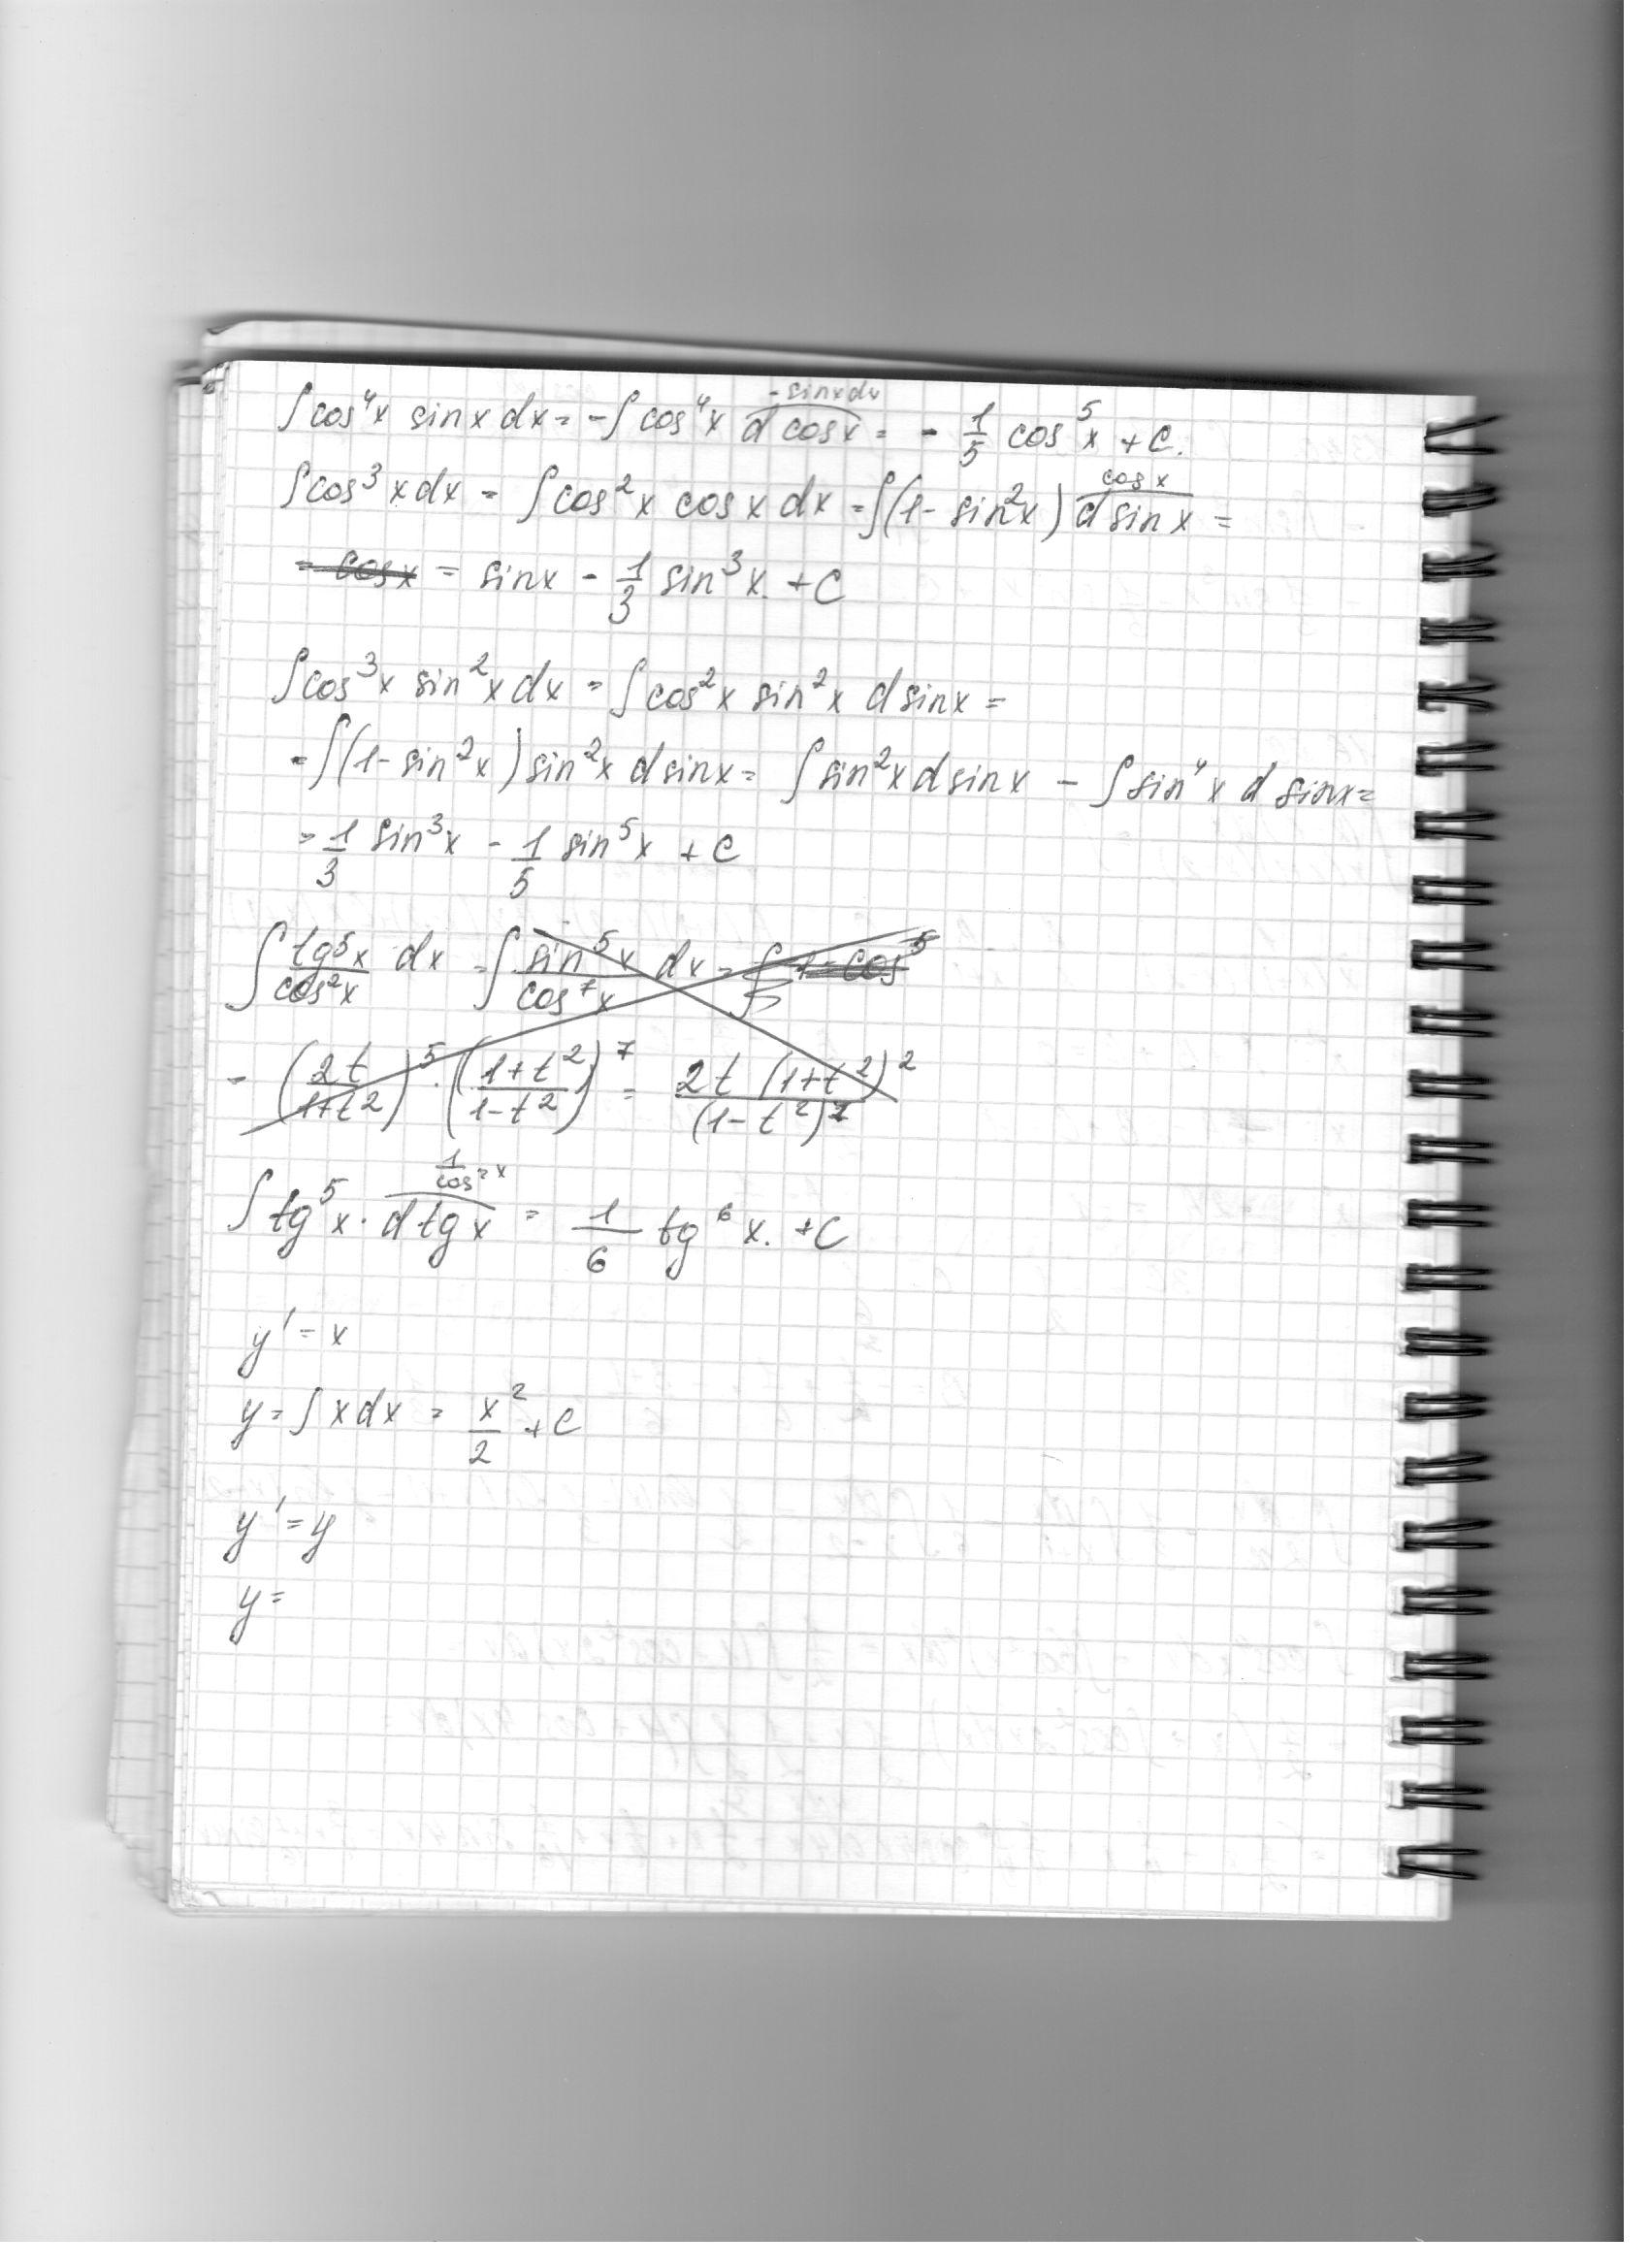 ∫cos⁴x sinx dx = -∫cos⁴x d cosx = -1/5 cos⁵x + C.
-sinxdx
∫cos³xdx = ∫cos²x cosx dx = ∫(1-sin²x) d sinx =
cosx
= cosx = sinx - 1/3 sin³x. + C
∫cos³x sin²x dx = ∫cos²x sin²x d sinx =
= ∫(1-sin²x) sin²x d sinx = ∫sin²x d sinx - ∫sin⁴x d sinx =
= 1/3 sin³x - 1/5 sin⁵x + C
∫ tg⁵x/cos²x dx = ∫ sin⁵x/cos⁷x dx = ∫ 1-cos⁵
= (2t/1+t²)⁵ · (1+t²/1-t²)⁷ = 2t (1+t²)²/(1-t²)⁷
1/cos²x
∫tg⁵x · d tgx = 1/6 tg⁶x. + C
y' = x
y = ∫xdx = x²/2 + C
y' = y
y =